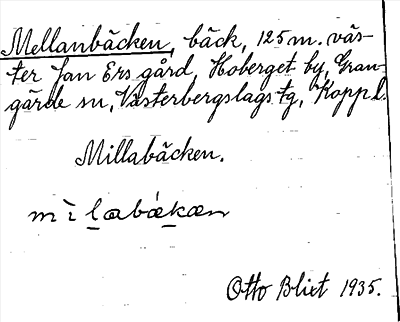 Mellanbäcken, bäck, 125 m. väs-
ter Jan Ers gård, Hoberget by, Gran-
gärde sn, Västerbergslags tg, Kopp.l.
Millabäcken.
Otto Blixt 1935.